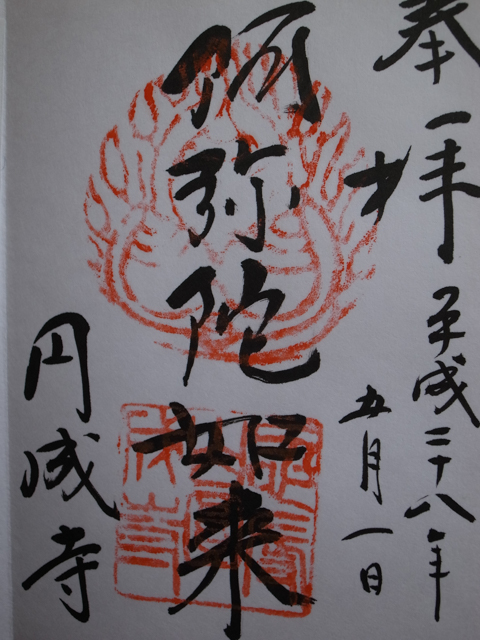 奉拝
平成二十八年
五月一日
阿弥陀如来
円成寺